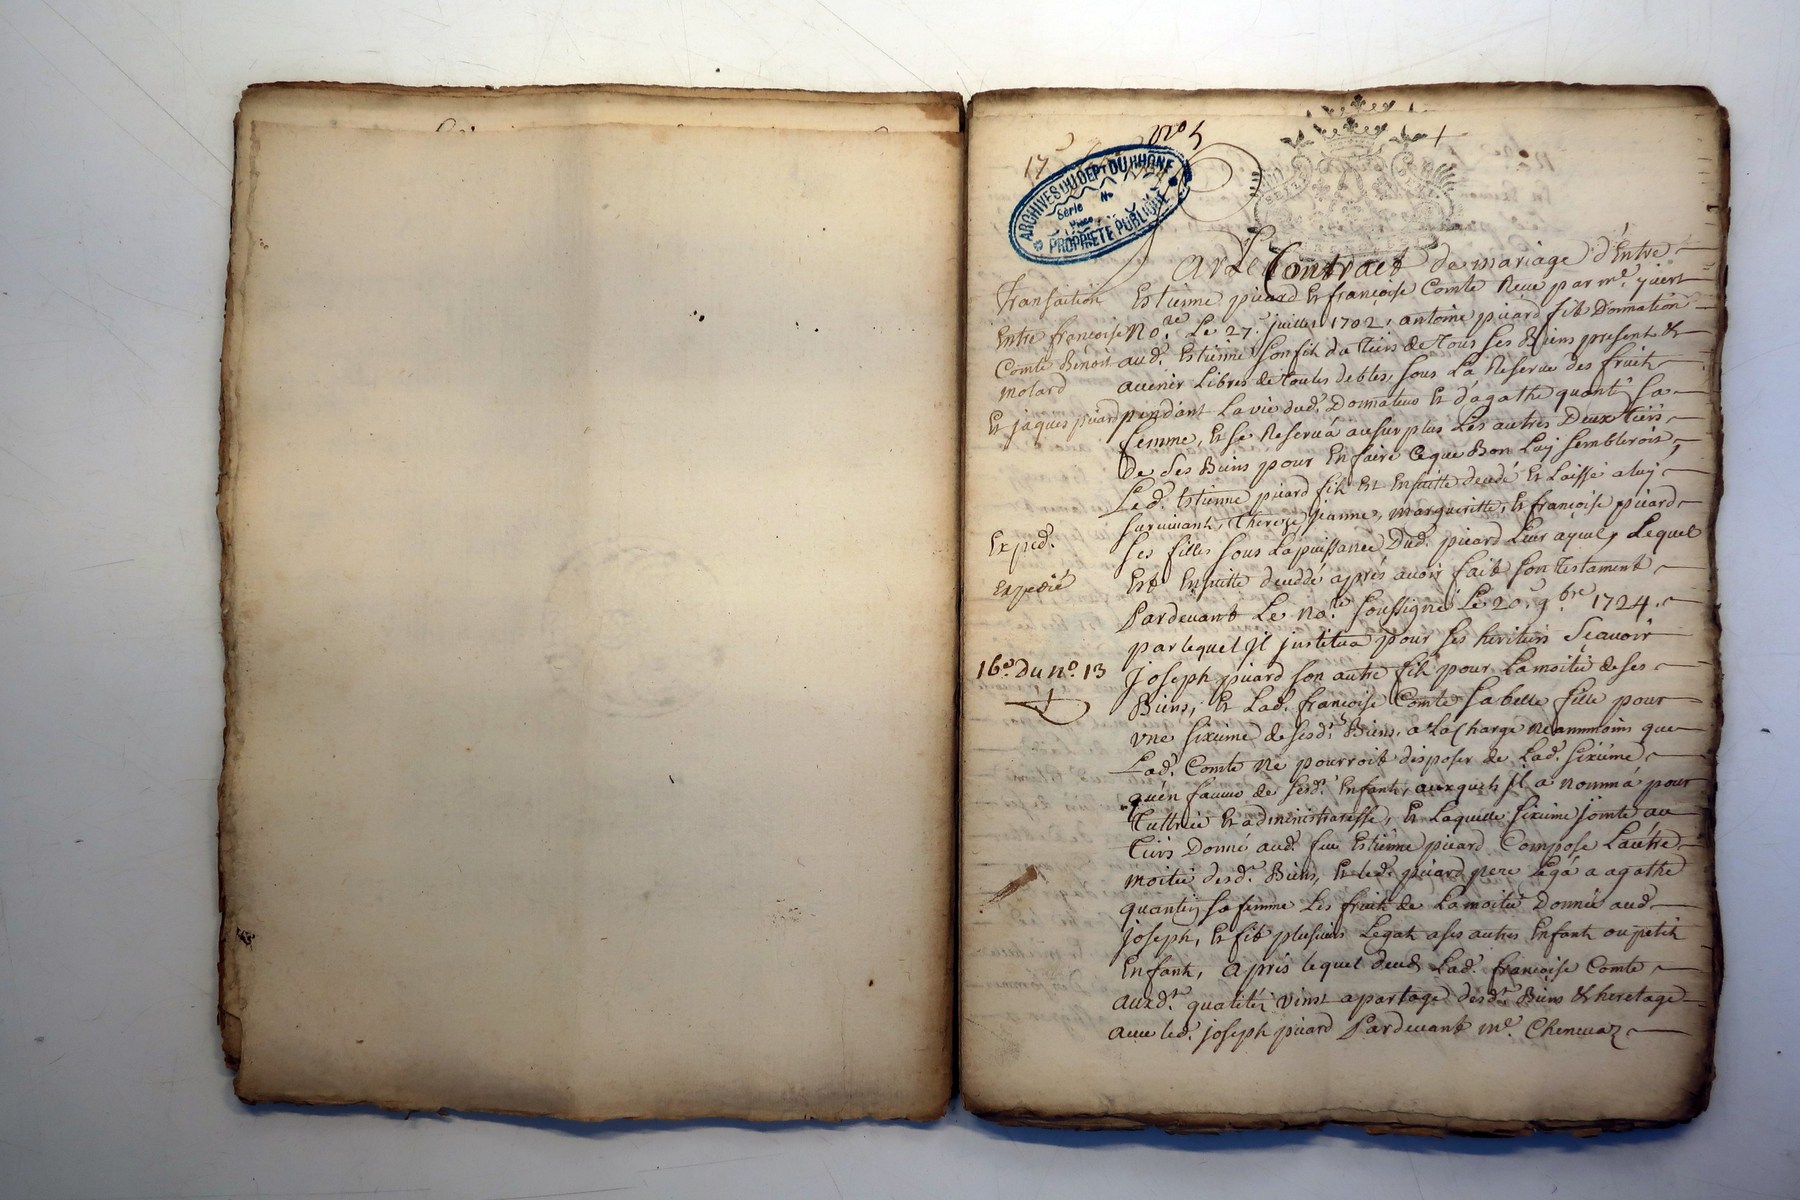 17
ARCHIVES DU DEPT DU RHÔNE
Série No
PROPRIÉTÉ PUBLIQUE
Transaction
Entre françoise
Comte Benoit
molard
Et jaques picard
Exped.
Expedié
16e. Du no. 13
Par Le Contract de mariage d'Entre
Estienne picard Et françoise Comte Receu par me.
Nore. Le 27e. juillet 1702, antoine picard fit Donnation
aud. Estienne son fils du Tiers de Tous ses Biens present &
avenir Libres de toutes debtes, sous La Reserve des fruits
pendant La vie dud. Donnateur Et d'agathe quantin sa
femme, Et se Reserva au surplus Les autres Deux tiers
De ses Biens pour En faire Ceque Bon Luy sembleroit,
Led. Estienne picard fils Est Ensuitte decedé Et Laissé a luy
survivant, Thereze, jeanne, margueritte, & françoise picard
ses filles sous La puissance Dud. picard Leur ayeul, Lequel
Est Ensuitte deceddé aprés avoir fait son Testament
Pardevant Le Nore. soussigné Le 20e. 9bre 1724.
par lequel jl justitua pour ses heritiers Sçavoir
Joseph picard son autre fils pour La moitié de ses
Biens, Et Lad. françoise Comte sa belle fille pour
vne sixieme de sesd. Biens, a La Charge Neanmmoins que
Lad. Comte Ne pourroit disposer de Lad. sixieme
qu'en faveur de sesd. Enfants, auxquels jl a nommá pour
Tuttrice Et administraresse, Et Laquelle sixieme jointe au
tiers Donné aud. feu Estienne picard Compose L'autre
moitié desd. Biens, Et led. picard pere Légá a agathe
quantin sa femme Les fruits de La moitié Donnée aud.
joseph, Et fit plusieurs Legats a ses autres Enfants ou petits
Enfants, aprés lequel deceds Lad. françoise Comte
auxd. qualitéz vinst a partage desd. Biens & heretage
avec led. joseph picard Pardevant me. Chenevaz